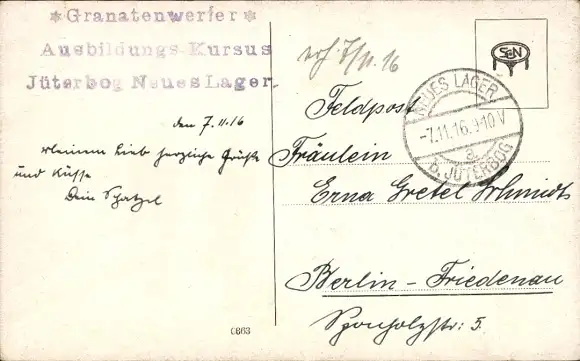 * Granatenwerfer *
Ausbildungs-Kursus
Jüterbog Neues Lager.
den 7.11.16
Meinem Lieb herzliche Grüße
und Küsse
Dein Schatzel
0863
erh 7/11.16
S&N
NEUES LAGER
-7.11.16.9-10V
a
b. JÜTERBOG
Feldpost
Fräulein
Erna Gretel Schmidt
Berlin - Friedenau
Sponholzstr: 5.